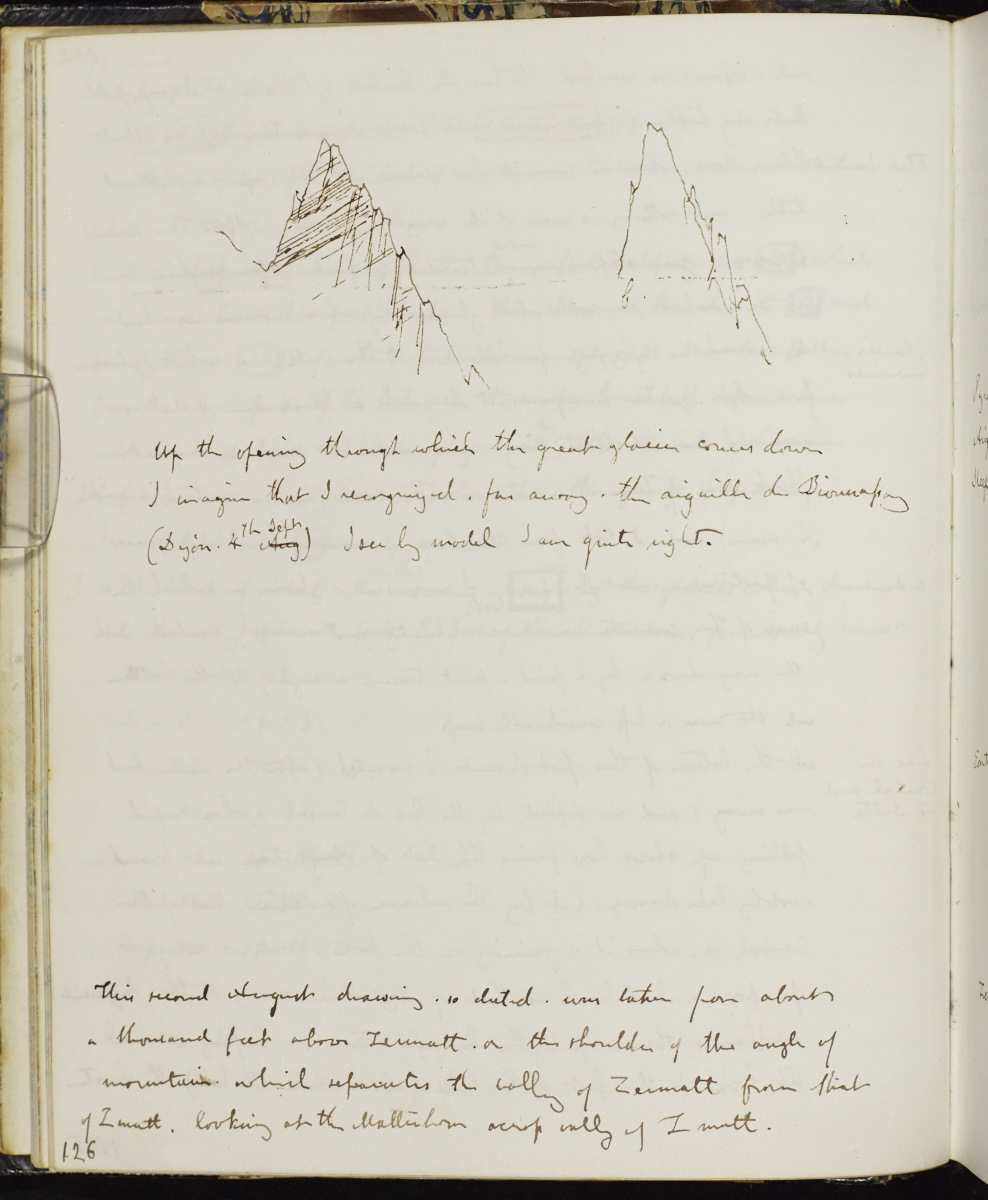 b.
Up the opening through which the great glacier comes down
I imagine that I recognized. far away. the aiguille de Bionnassay
(Dijon. 4th Sept Aug) I see by model I am quite right.
This second August drawing. so dated. was taken from about
a thousand feet above Zermatt. on the shoulder of the angle of
mountain which separates the valley of Zermatt from that
of Zmutt. looking at the Matterhorn across valley of Zmutt.
126